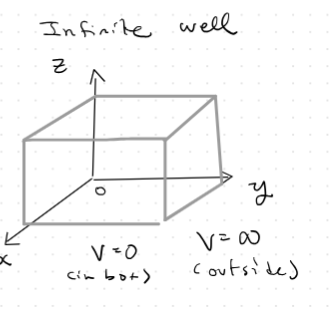 Infinite well
z
o
y
x
V=0
(in box)
V=∞
(outside)